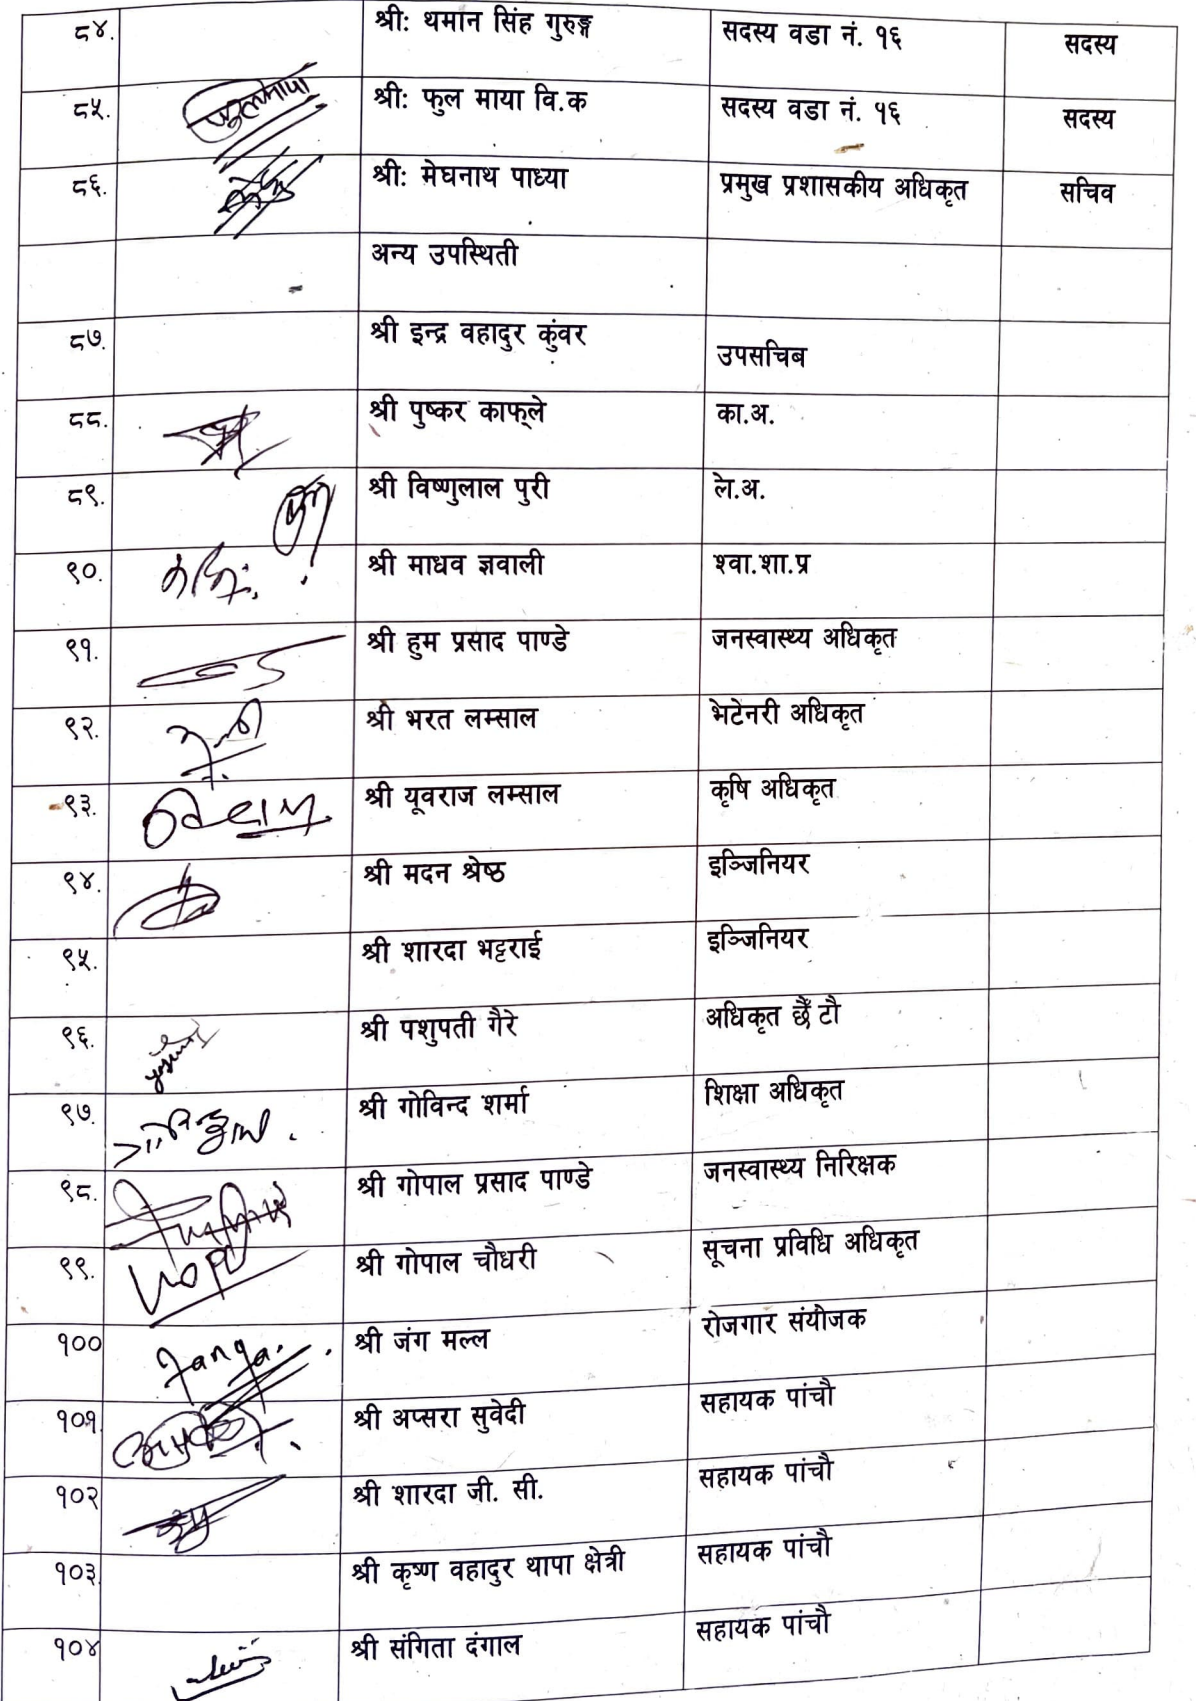 ८४. श्री: थमान सिंह गुरुङ्ग सदस्य वडा नं. १६ सदस्य
८५. फुलमाया श्री: फुल माया वि.क सदस्य वडा नं. १६ सदस्य
८६. श्री: मेघनाथ पाध्या प्रमुख प्रशासकीय अधिकृत सचिव
अन्य उपस्थिती
८७. श्री इन्द्र वहादुर कुंवर उपसचिब
८८. श्री पुष्कर काफ्ले का.अ.
८९. श्री विष्णुलाल पुरी ले.अ.
९०. श्री माधव ज्ञवाली श्वा.शा.प्र
९१. श्री हुम प्रसाद पाण्डे जनस्वास्थ्य अधिकृत
९२. श्री भरत लम्साल भेटेनरी अधिकृत
९३. श्री यूवराज लम्साल कृषि अधिकृत
९४. श्री मदन श्रेष्ठ इञ्जिनियर
९५. श्री शारदा भट्टराई इञ्जिनियर
९६. श्री पशुपती गैरे अधिकृत छैँ टौ
९७. श्री गोविन्द शर्मा शिक्षा अधिकृत
९८. श्री गोपाल प्रसाद पाण्डे जनस्वास्थ्य निरिक्षक
९९. श्री गोपाल चौधरी सूचना प्रविधि अधिकृत
१०० Janga. श्री जंग मल्ल रोजगार संयोजक
१०१ श्री अप्सरा सुवेदी सहायक पांचौ
१०२ श्री शारदा जी. सी. सहायक पांचौ
१०३ श्री कृष्ण वहादुर थापा क्षेत्री सहायक पांचौ
१०४ श्री संगिता दंगाल सहायक पांचौ